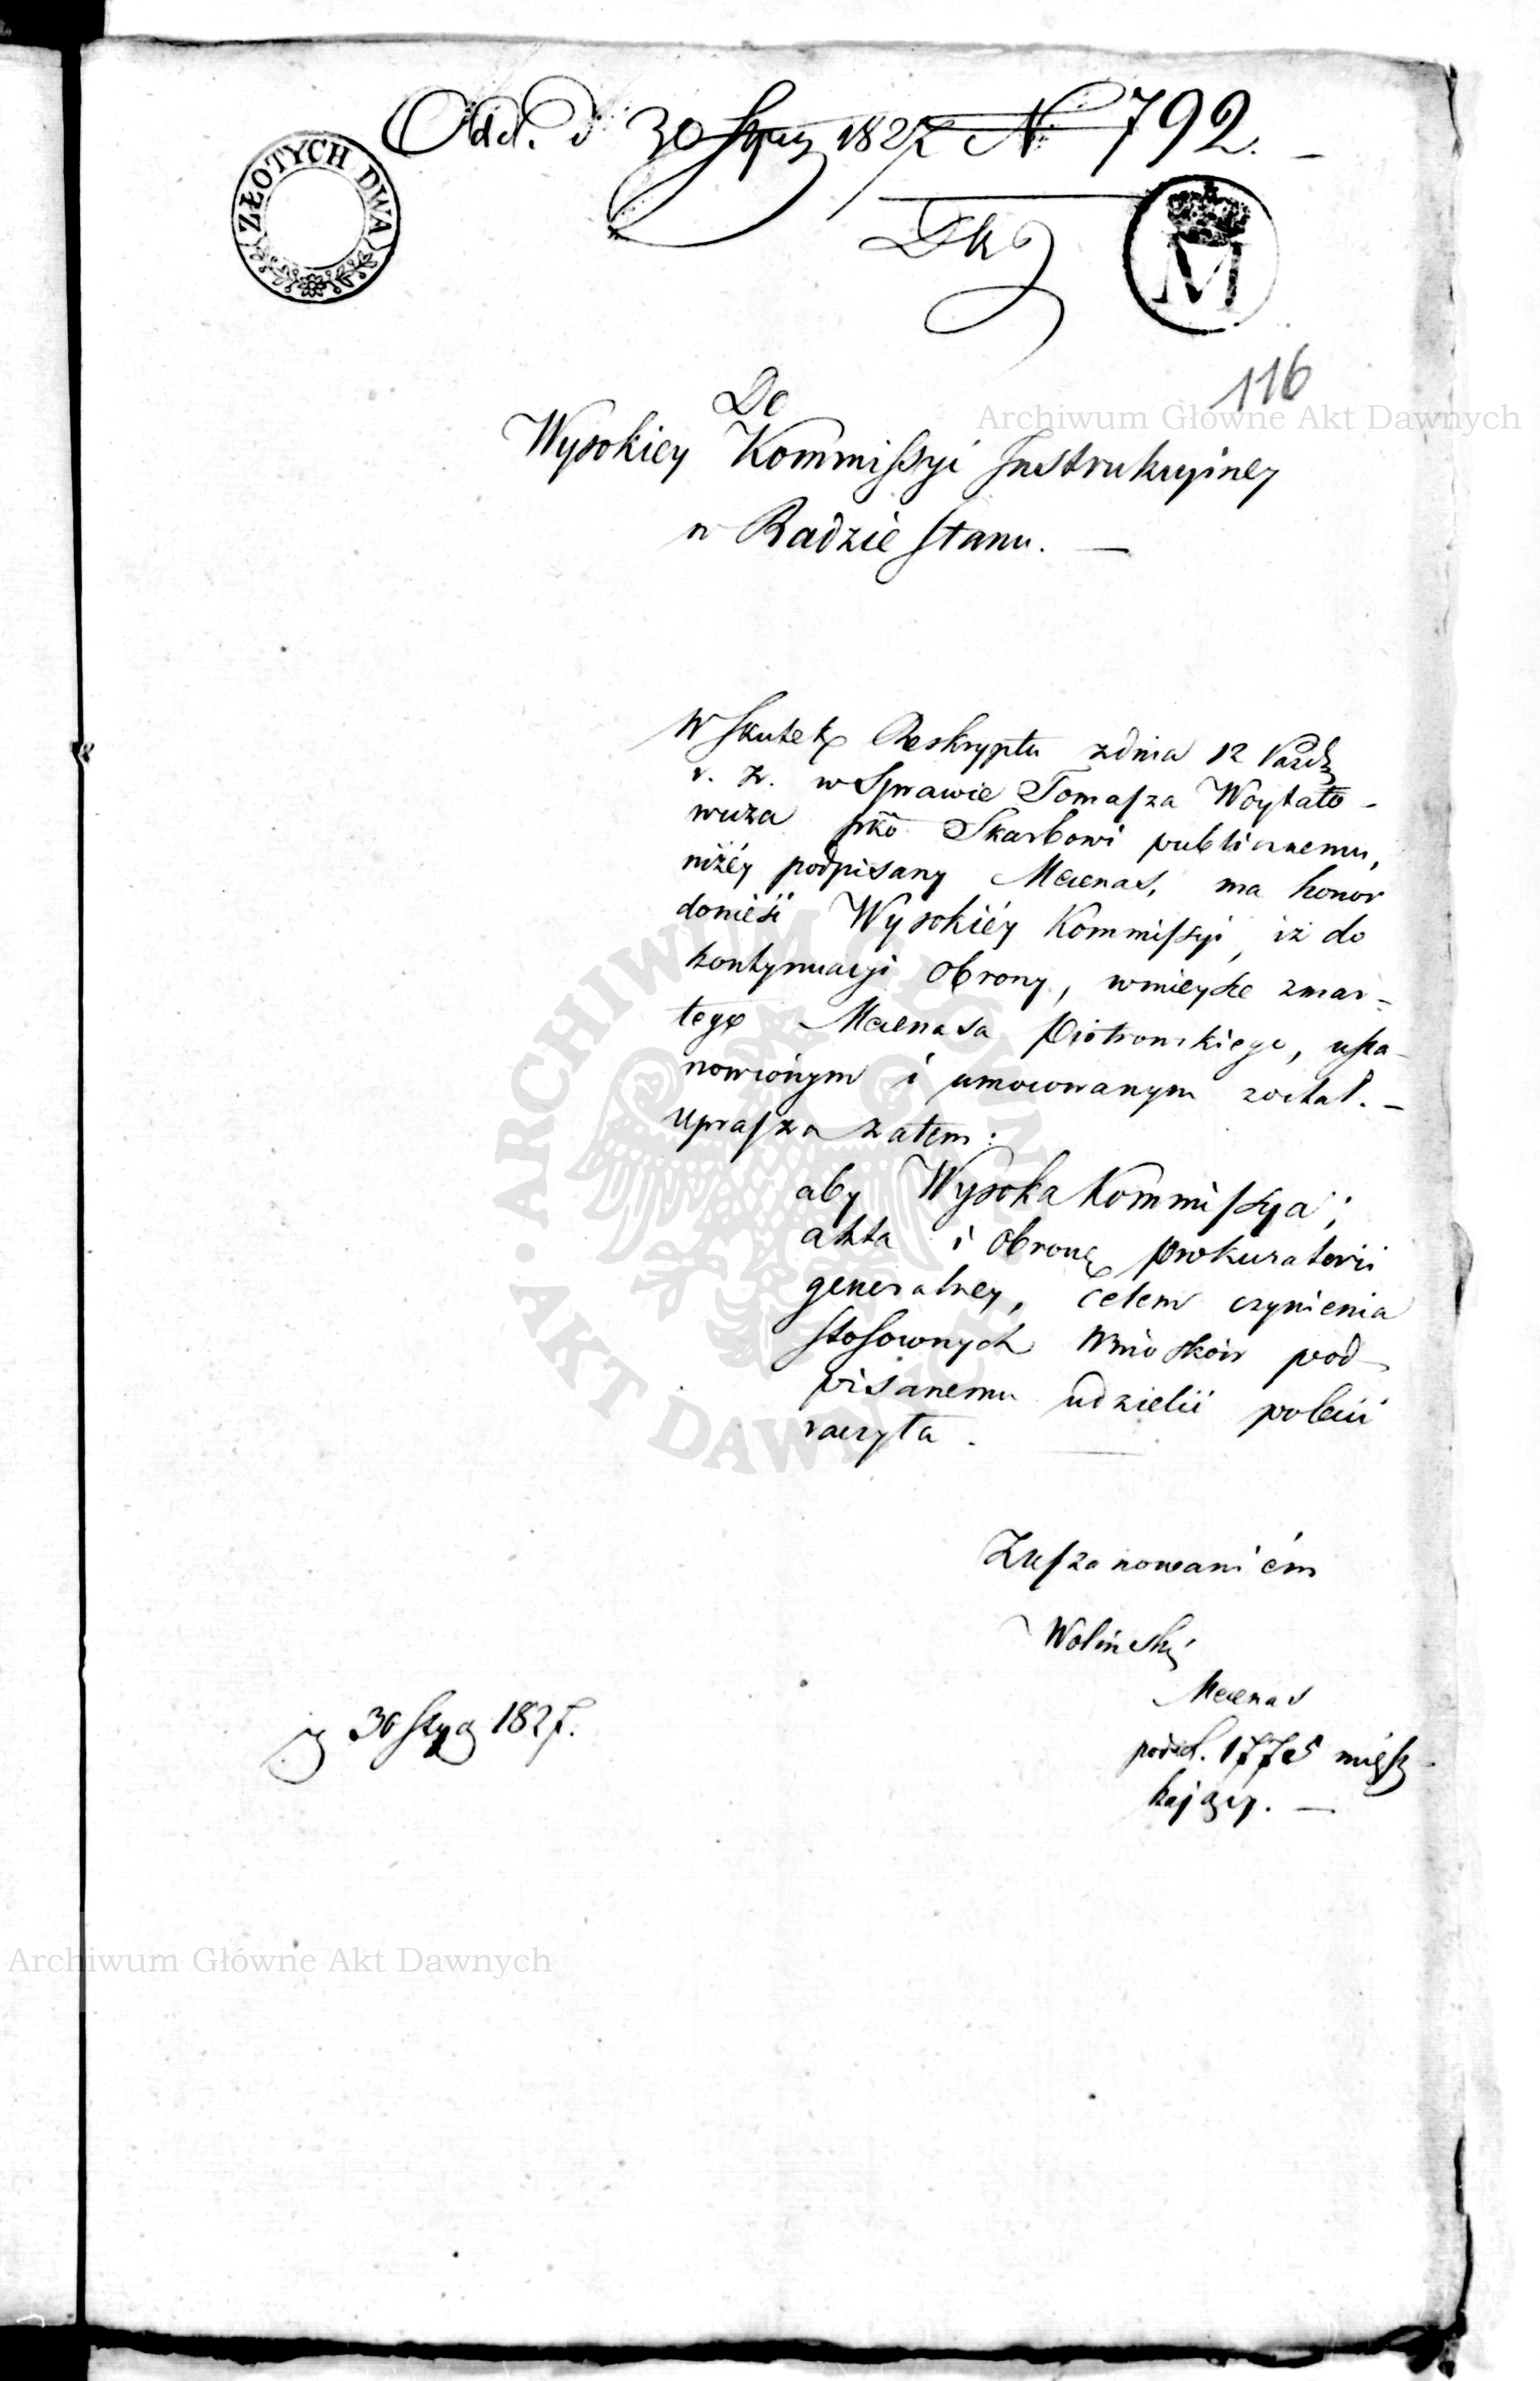 Odd. d 30 Stycz 1827 N 792. —
ZŁOTYCH DWA
M
116
Archiwum Główne Akt Dawnych
Do
Wysokiey Kommissyi Instrukcyiney
w Radzie Stanu. —
W skutek Reskryptu z dnia 12 Paźdz
r. z. w Sprawie Tomasza Woytato-
wicza pko Skarbowi publicznemu,
niżéy podpisany Mecenas, ma honor
donieść Wysokiéy Kommissyi, iż do
kontynuacyi Obrony, w mieysce zmar-
tego Mecenasa Piotrowskiego, usta-
nowionym i umocowanym został. —
Uprasza zatem:
aby Wysoka Kommissya,
akta i Obronę prokuratorii
generalney, celem czynienia
stosownych Wniosków pod-
pisanemu udzielić polecić
raczyła.
Z uszanowaniém
Woliński
Mecenas
pod L. 1775 miesz-
kający. —
30 Stycz 1827.
ARCHIWUM GŁÓWNE
AKT DAWNYCH
Archiwum Główne Akt Dawnych